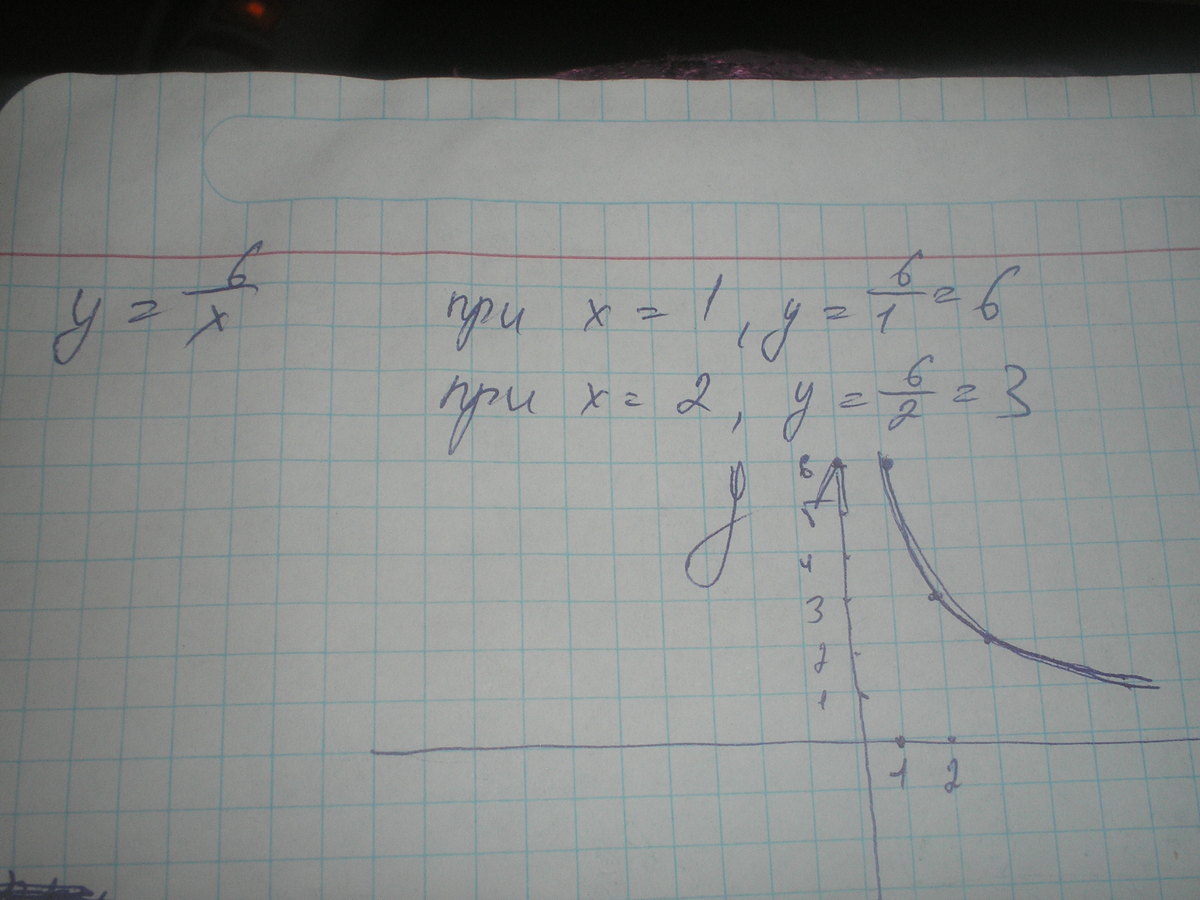 y = 6/x при x = 1, y = 6/1 = 6
при x = 2, y = 6/2 = 3
y
6
5
4
3
2
1
1 2